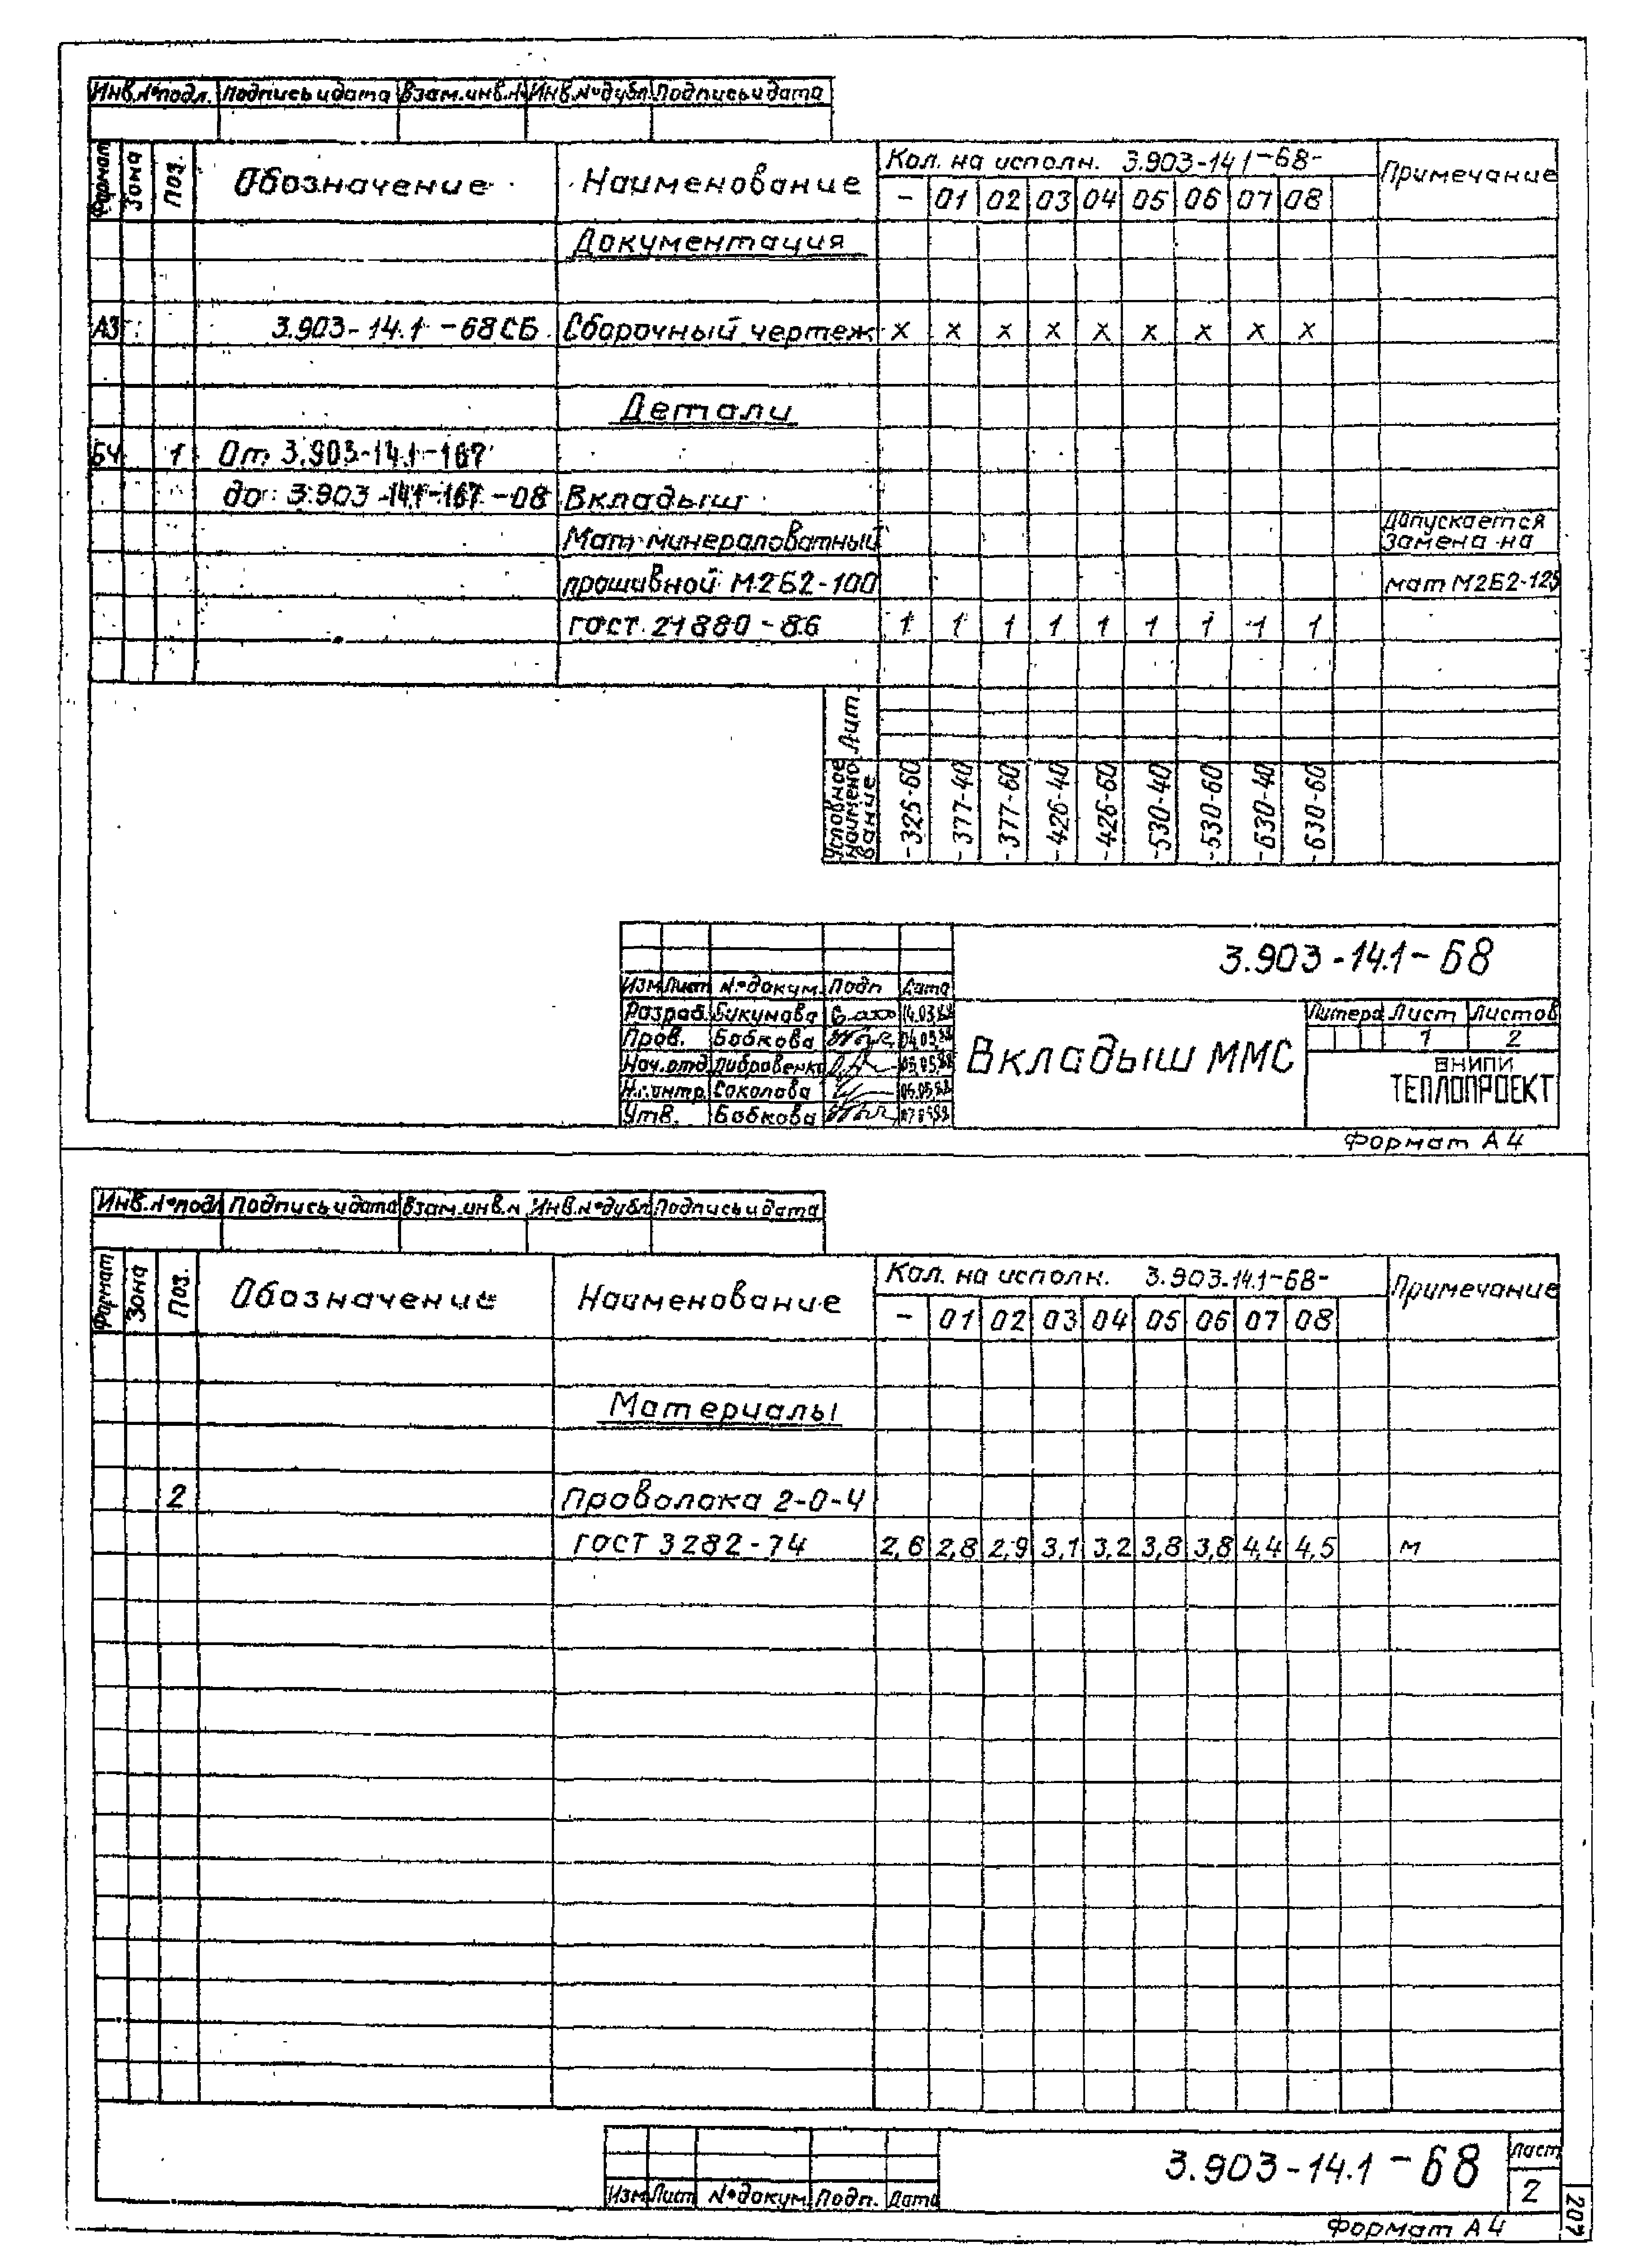 Инв.№подл. Подпись и дата Взам.инв.№ Инв.№дубл. Подпись и дата
Формат Зона Поз. Обозначение Наименование Кол. на исполн. 3.903-14.1-68- Примечание
- 01 02 03 04 05 06 07 08
Документация
А3 3.903-14.1-68СБ Сборочный чертеж х х х х х х х х х
Детали
БЧ 1 От 3.903-14.1-167
до 3.903-14.1-167-08 Вкладыш
Мат минераловатный Допускается замена на
прошивной М2Б2-100 мат М2Б2-125
ГОСТ 21880-86 1 1 1 1 1 1 1 1 1
Лит.
Условное наименование -325-60 -377-40 -377-60 -426-40 -426-60 -530-40 -530-60 -630-40 -630-60
3.903-14.1-68
Изм Лист №докум. Подп Дата
Разраб. Букунова 14.03.88
Пров. Бобкова 04.05.88
Нач.отд. Дибровенко 05.05.88
Н.контр. Соколова 06.05.88
Утв. Бобкова
Вкладыш ММС
Литера Лист Листов
1 2
ВНИПИ
ТЕПЛОПРОЕКТ
Формат А4
Инв.№подл Подпись и дата Взам.инв.№ Инв.№дубл Подпись и дата
Формат Зона Поз. Обозначение Наименование Кол. на исполн. 3.903-14.1-68- Примечание
- 01 02 03 04 05 06 07 08
Материалы
2 Проволока 2-0-4
ГОСТ 3282-74 2,6 2,8 2,9 3,1 3,2 3,8 3,8 4,4 4,5 м
3.903-14.1-68
Лист
2
Изм Лист №докум. Подп. Дата
Формат А4
207